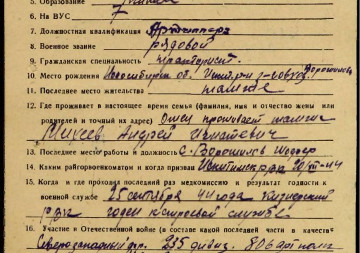 5. Образование
6. На ВУС
7. Должностная квалификация
8. Военное звание рядовой
9. Гражданская специальность тракторист
10. Место рождения Новосибирск об.
11. Последнее место жительства
12. Где проживает в настоящее время семья (фамилия, имя и отчество жены или
родителей и точный их адрес) Отец проживает
Михеев Андрей Игнатевич
13. Последнее место работы и должность с. Ворошилов шофер
14. Каким райгорвоенкоматом и когда призван
15. Когда и где проходил последний раз медкомиссию и результат годности к
военной службе 25 сентября 41 года
РВК годен к строевой службе
16. Участие в Отечественной войне (в составе какой последней части в качеств
Северозападный фр. 235 дивиз. 806